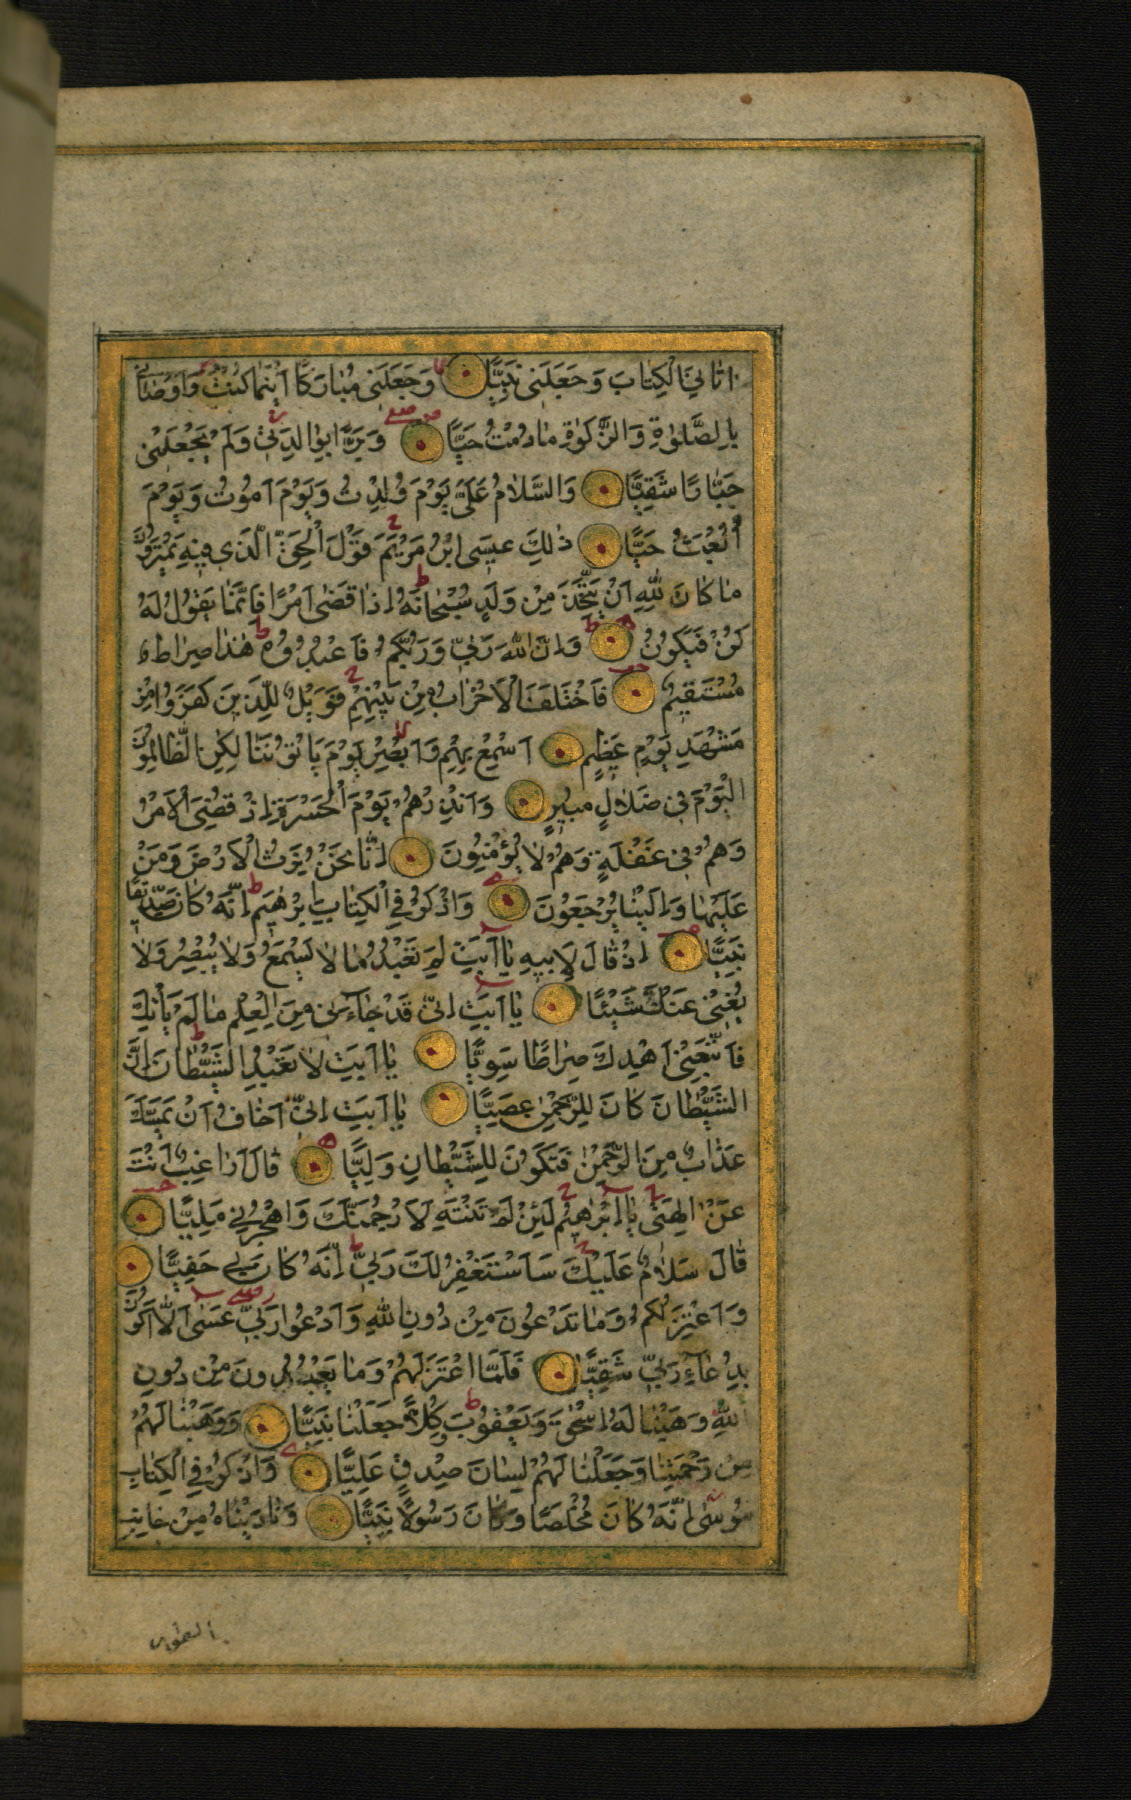 اٰتٰانِيَ الْكِتٰابَ وَجَعَلَنٖي نَبِيًّا وَجَعَلَنٖي مُبٰارَكًا اَيْنَمٰا كُنْتُ وَاَوْصٰانٖي
بِالصَّلٰوةِ وَالزَّكٰوةِ مٰا دُمْتُ حَيًّا وَبَرًّا بِوٰالِدَتٖي وَلَمْ يَجْعَلْنٖي
جَبّٰارًا شَقِيًّا وَالسَّلٰامُ عَلَيَّ يَوْمَ وُلِدْتُ وَيَوْمَ اَمُوتُ وَيَوْمَ
اُبْعَثُ حَيًّا ذٰلِكَ عٖيسَى ابْنُ مَرْيَمَ قَوْلَ الْحَقِّ الَّذٖي فٖيهِ يَمْتَرُونَ
مٰا كٰانَ لِلّٰهِ اَنْ يَتَّخِذَ مِنْ وَلَدٍ سُبْحٰانَهُ اِذٰا قَضٰى اَمْرًا فَاِنَّمٰا يَقُولُ لَهُ
كُنْ فَيَكُونُ وَاِنَّ اللّٰهَ رَبّٖي وَرَبُّكُمْ فَاعْبُدُوهُ هٰذٰا صِرٰاطٌ
مُسْتَقٖيمٌ فَاخْتَلَفَ الْاَحْزٰابُ مِنْ بَيْنِهِمْ فَوَيْلٌ لِلَّذٖينَ كَفَرُوا مِنْ
مَشْهَدِ يَوْمٍ عَظٖيمٍ اَسْمِعْ بِهِمْ وَاَبْصِرْ يَوْمَ يَاْتُونَنٰا لٰكِنِ الظّٰالِمُونَ
الْيَوْمَ فٖي ضَلٰالٍ مُبٖينٍ وَاَنْذِرْهُمْ يَوْمَ الْحَسْرَةِ اِذْ قُضِيَ الْاَمْرُ
وَهُمْ فٖي غَفْلَةٍ وَهُمْ لٰا يُؤْمِنُونَ اِنّٰا نَحْنُ نَرِثُ الْاَرْضَ وَمَنْ
عَلَيْهٰا وَاِلَيْنٰا يُرْجَعُونَ وَاذْكُرْ فِي الْكِتٰابِ اِبْرٰهٖيمَ اِنَّهُ كٰانَ صِدّٖيقًا
نَبِيًّا اِذْ قٰالَ لِاَبٖيهِ يٰا اَبَتِ لِمَ تَعْبُدُ مٰا لٰا يَسْمَعُ وَلٰا يُبْصِرُ وَلٰا
يُغْنٖي عَنْكَ شَيْئًا يٰا اَبَتِ اِنّٖي قَدْ جٰاءَنٖي مِنَ الْعِلْمِ مٰا لَمْ يَاْتِكَ
فَاتَّبِعْنٖي اَهْدِكَ صِرٰاطًا سَوِيًّا يٰا اَبَتِ لٰا تَعْبُدِ الشَّيْطٰانَ اِنَّ
الشَّيْطٰانَ كٰانَ لِلرَّحْمٰنِ عَصِيًّا يٰا اَبَتِ اِنّٖي اَخٰافُ اَنْ يَمَسَّكَ
عَذٰابٌ مِنَ الرَّحْمٰنِ فَتَكُونَ لِلشَّيْطٰانِ وَلِيًّا قٰالَ اَرٰاغِبٌ اَنْتَ
عَنْ اٰلِهَتٖي يٰا اِبْرٰهٖيمُ لَئِنْ لَمْ تَنْتَهِ لَاَرْجُمَنَّكَ وَاهْجُرْنٖي مَلِيًّا
قٰالَ سَلٰامٌ عَلَيْكَ سَاَسْتَغْفِرُ لَكَ رَبّٖي اِنَّهُ كٰانَ بٖي حَفِيًّا
وَاَعْتَزِلُكُمْ وَمٰا تَدْعُونَ مِنْ دُونِ اللّٰهِ وَاَدْعُوا رَبّٖي عَسٰى اَلّٰا اَكُونَ
بِدُعٰاءِ رَبّٖي شَقِيًّا فَلَمَّا اعْتَزَلَهُمْ وَمٰا يَعْبُدُونَ مِنْ دُونِ
اللّٰهِ وَهَبْنٰا لَهُ اِسْحٰقَ وَيَعْقُوبَ وَكُلًّا جَعَلْنٰا نَبِيًّا وَوَهَبْنٰا لَهُمْ
مِنْ رَحْمَتِنٰا وَجَعَلْنٰا لَهُمْ لِسٰانَ صِدْقٍ عَلِيًّا وَاذْكُرْ فِي الْكِتٰابِ
مُوسٰى اِنَّهُ كٰانَ مُخْلَصًا وَكٰانَ رَسُولًا نَبِيًّا وَنٰادَيْنٰاهُ مِنْ جٰانِبِ